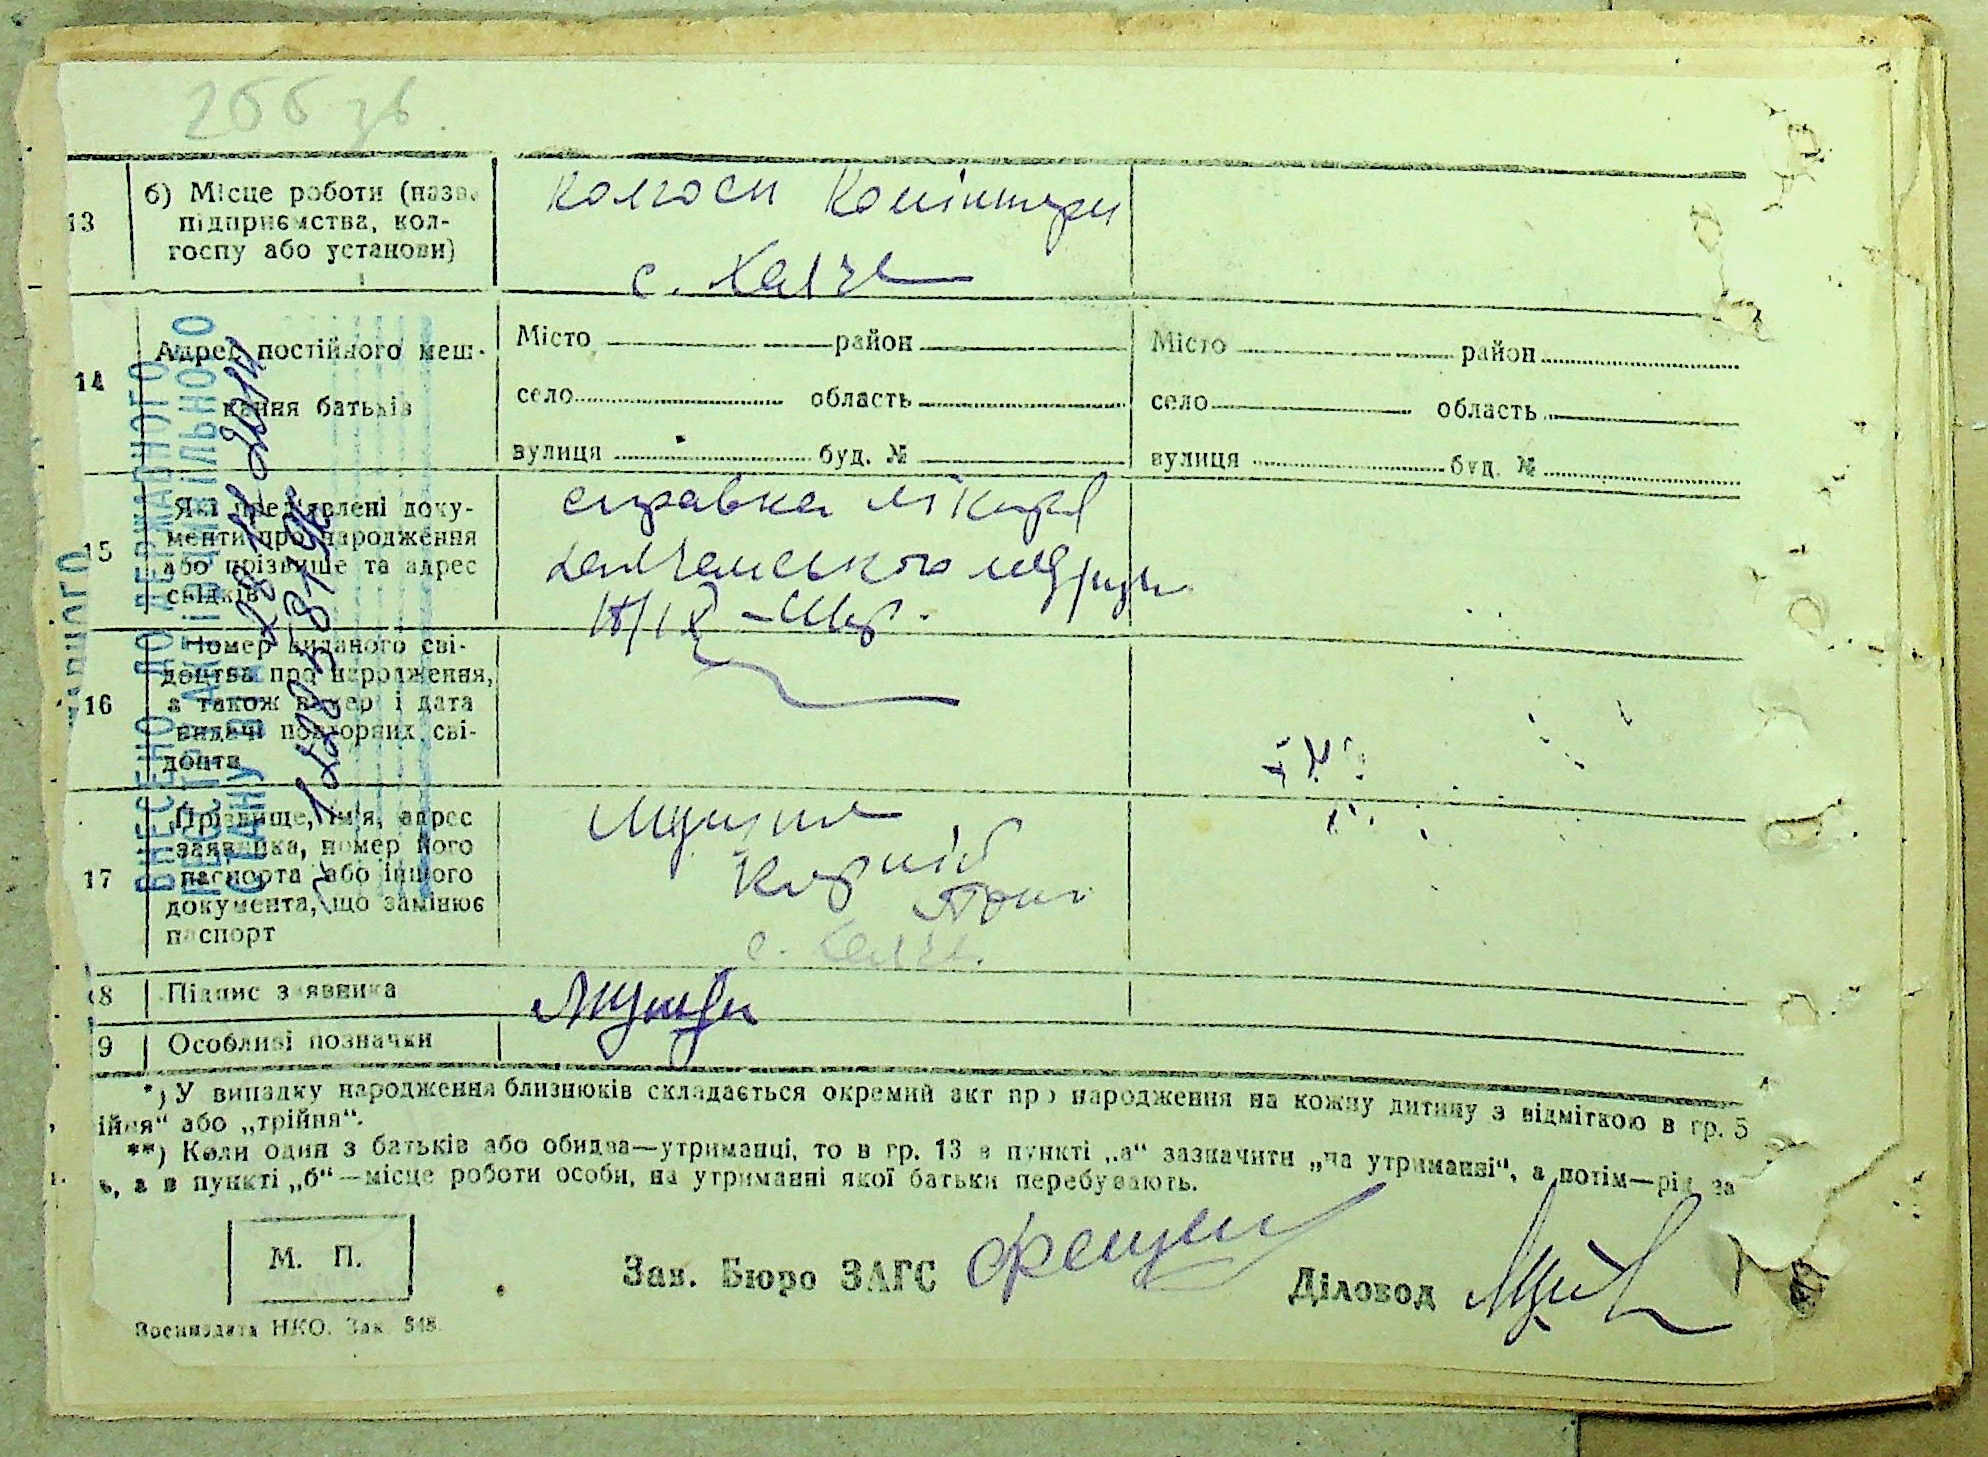 266 зв.
13
б) Місце роботи (назва
підприємства, кол-
госпу або установи)
колгосп Комінтерн
с. Халча
14
Адрес постійного меш-
кання батьків
Місто район
село область
вулиця буд. №
Місто район
село область
вулиця буд. №
15
Які пред'явлені доку-
менти про народження
або прізвище та адрес
свідків
справка лікаря
16
Номер виданого сві-
доцтва про народження,
а також номер і дата
видачі повторних сві-
доцтв
17
Прізвище, ім'я, адрес
заявника, номер його
паспорта або іншого
документа, що замінює
паспорт
Корній
с. Халча.
18
Підпис заявника
19
Особливі позначки
ВНЕСЕНО ДО ДЕРЖАВНОГО
РЕЄСТРУ АКТІВ ЦИВІЛЬНОГО
СТАНУ
*) У випадку народження близнюків складається окремий акт про народження на кожну дитину з відміткою в гр. 5
ійня" або „трійня".
**) Коли один з батьків або обидва—утриманці, то в гр. 13 в пункті „а" зазначити „на утриманні", а потім—рід за
ь, а в пункті „б"—місце роботи особи, на утриманні якої батьки перебувають.
М. П.
Зав. Бюро ЗАГС
Діловод
Воениздата НКО. Зак. 548.